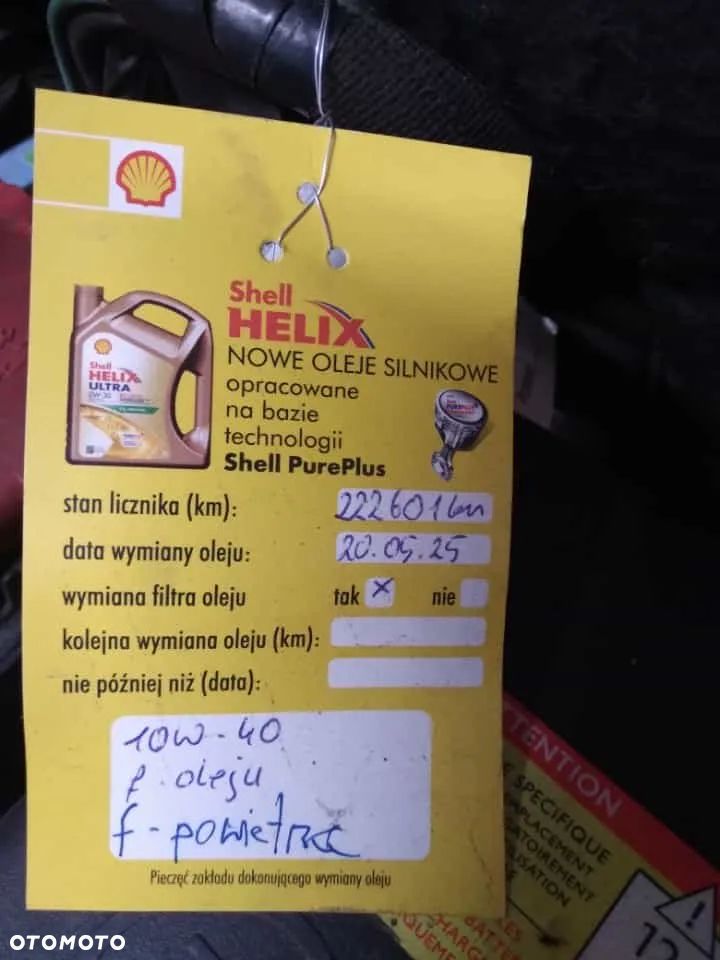 Shell
HELIX
NOWE OLEJE SILNIKOWE
opracowane
na bazie
technologii
Shell PurePlus
Shell
HELIX
ULTRA
stan licznika (km): 222601 km
data wymiany oleju: 20.05.25
wymiana filtra oleju tak x nie
kolejna wymiana oleju (km):
nie później niż (data):
10W-40
f. oleju
f-powietrza
Pieczęć zakładu dokonującego wymiany oleju
TTENTION
SPECIFIQUE
MPLACEMENT
ATOIREMENT
ILISATION
BATTE
CHARG
QUEME
12
OTOMOTO